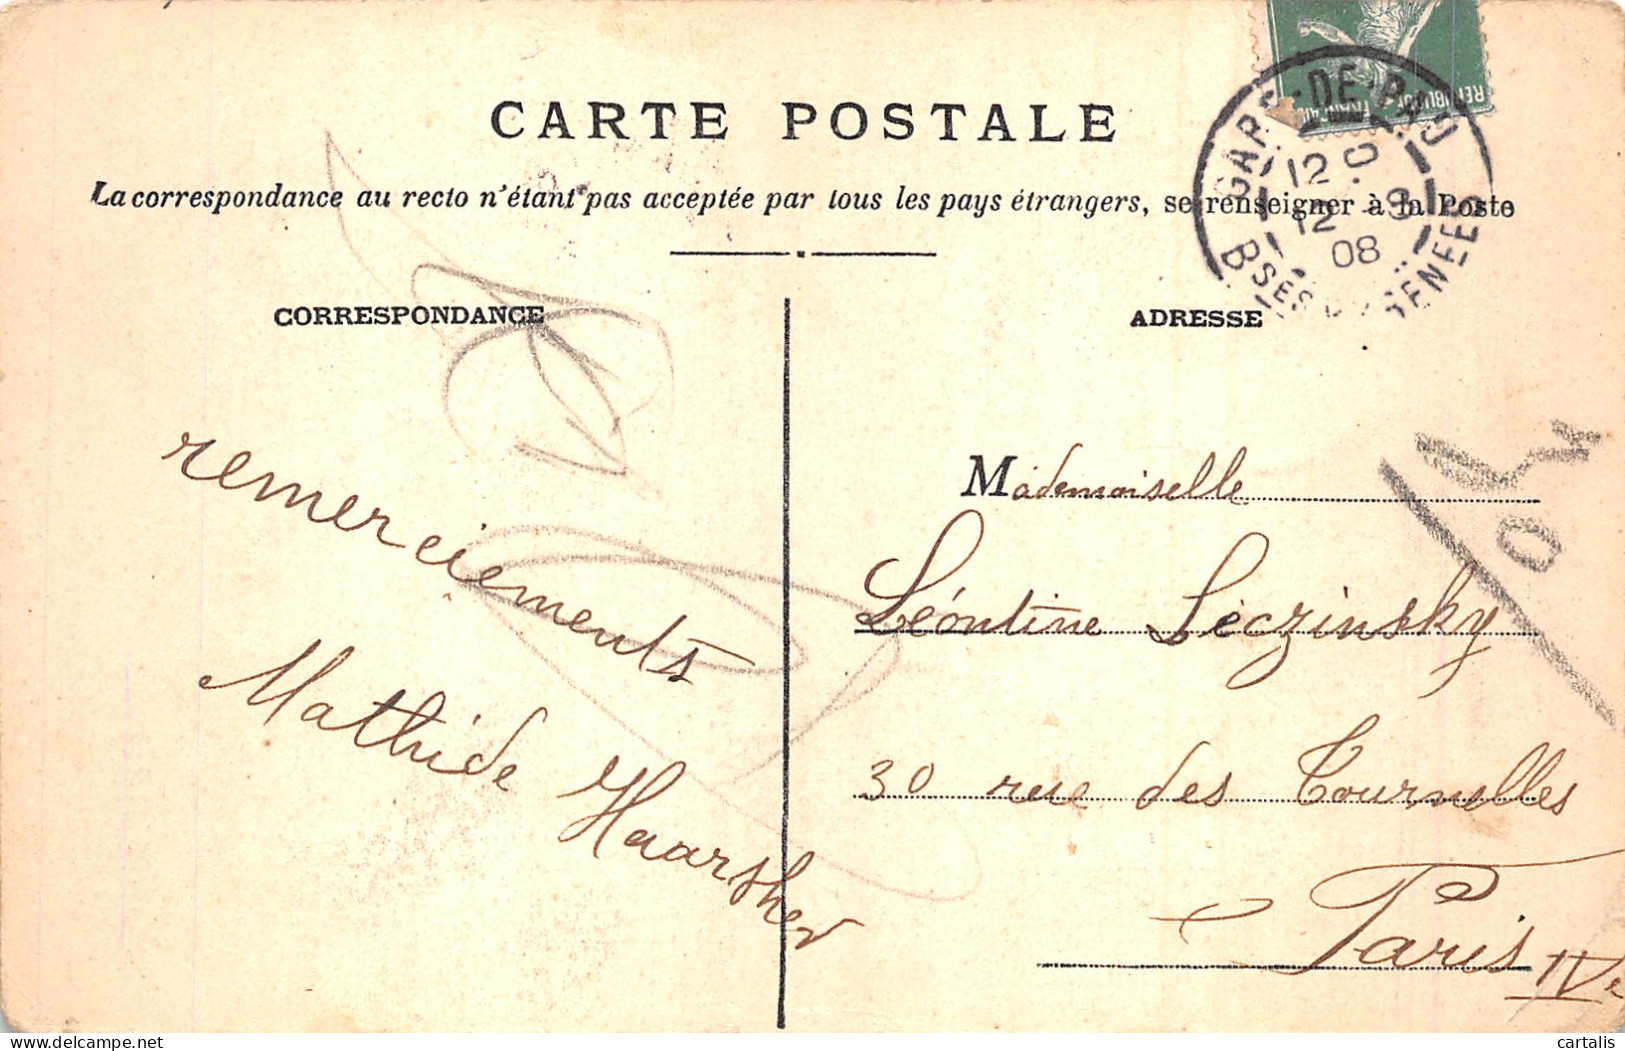 CARTE POSTALE
La correspondance au recto n'étant pas acceptée par tous les pays étrangers, se renseigner à la Poste
CORRESPONDANCE
ADRESSE
REPUBLIQUE FRANÇAISE
GARE-DE-PAU
12
12 -8
08
BSES PYRENEES
remerciements
Mathide Haarsher
Mademoiselle
Léontine Léczinsky
30 rue des Tournelles
Paris IVe
cartalis
delcampe.net